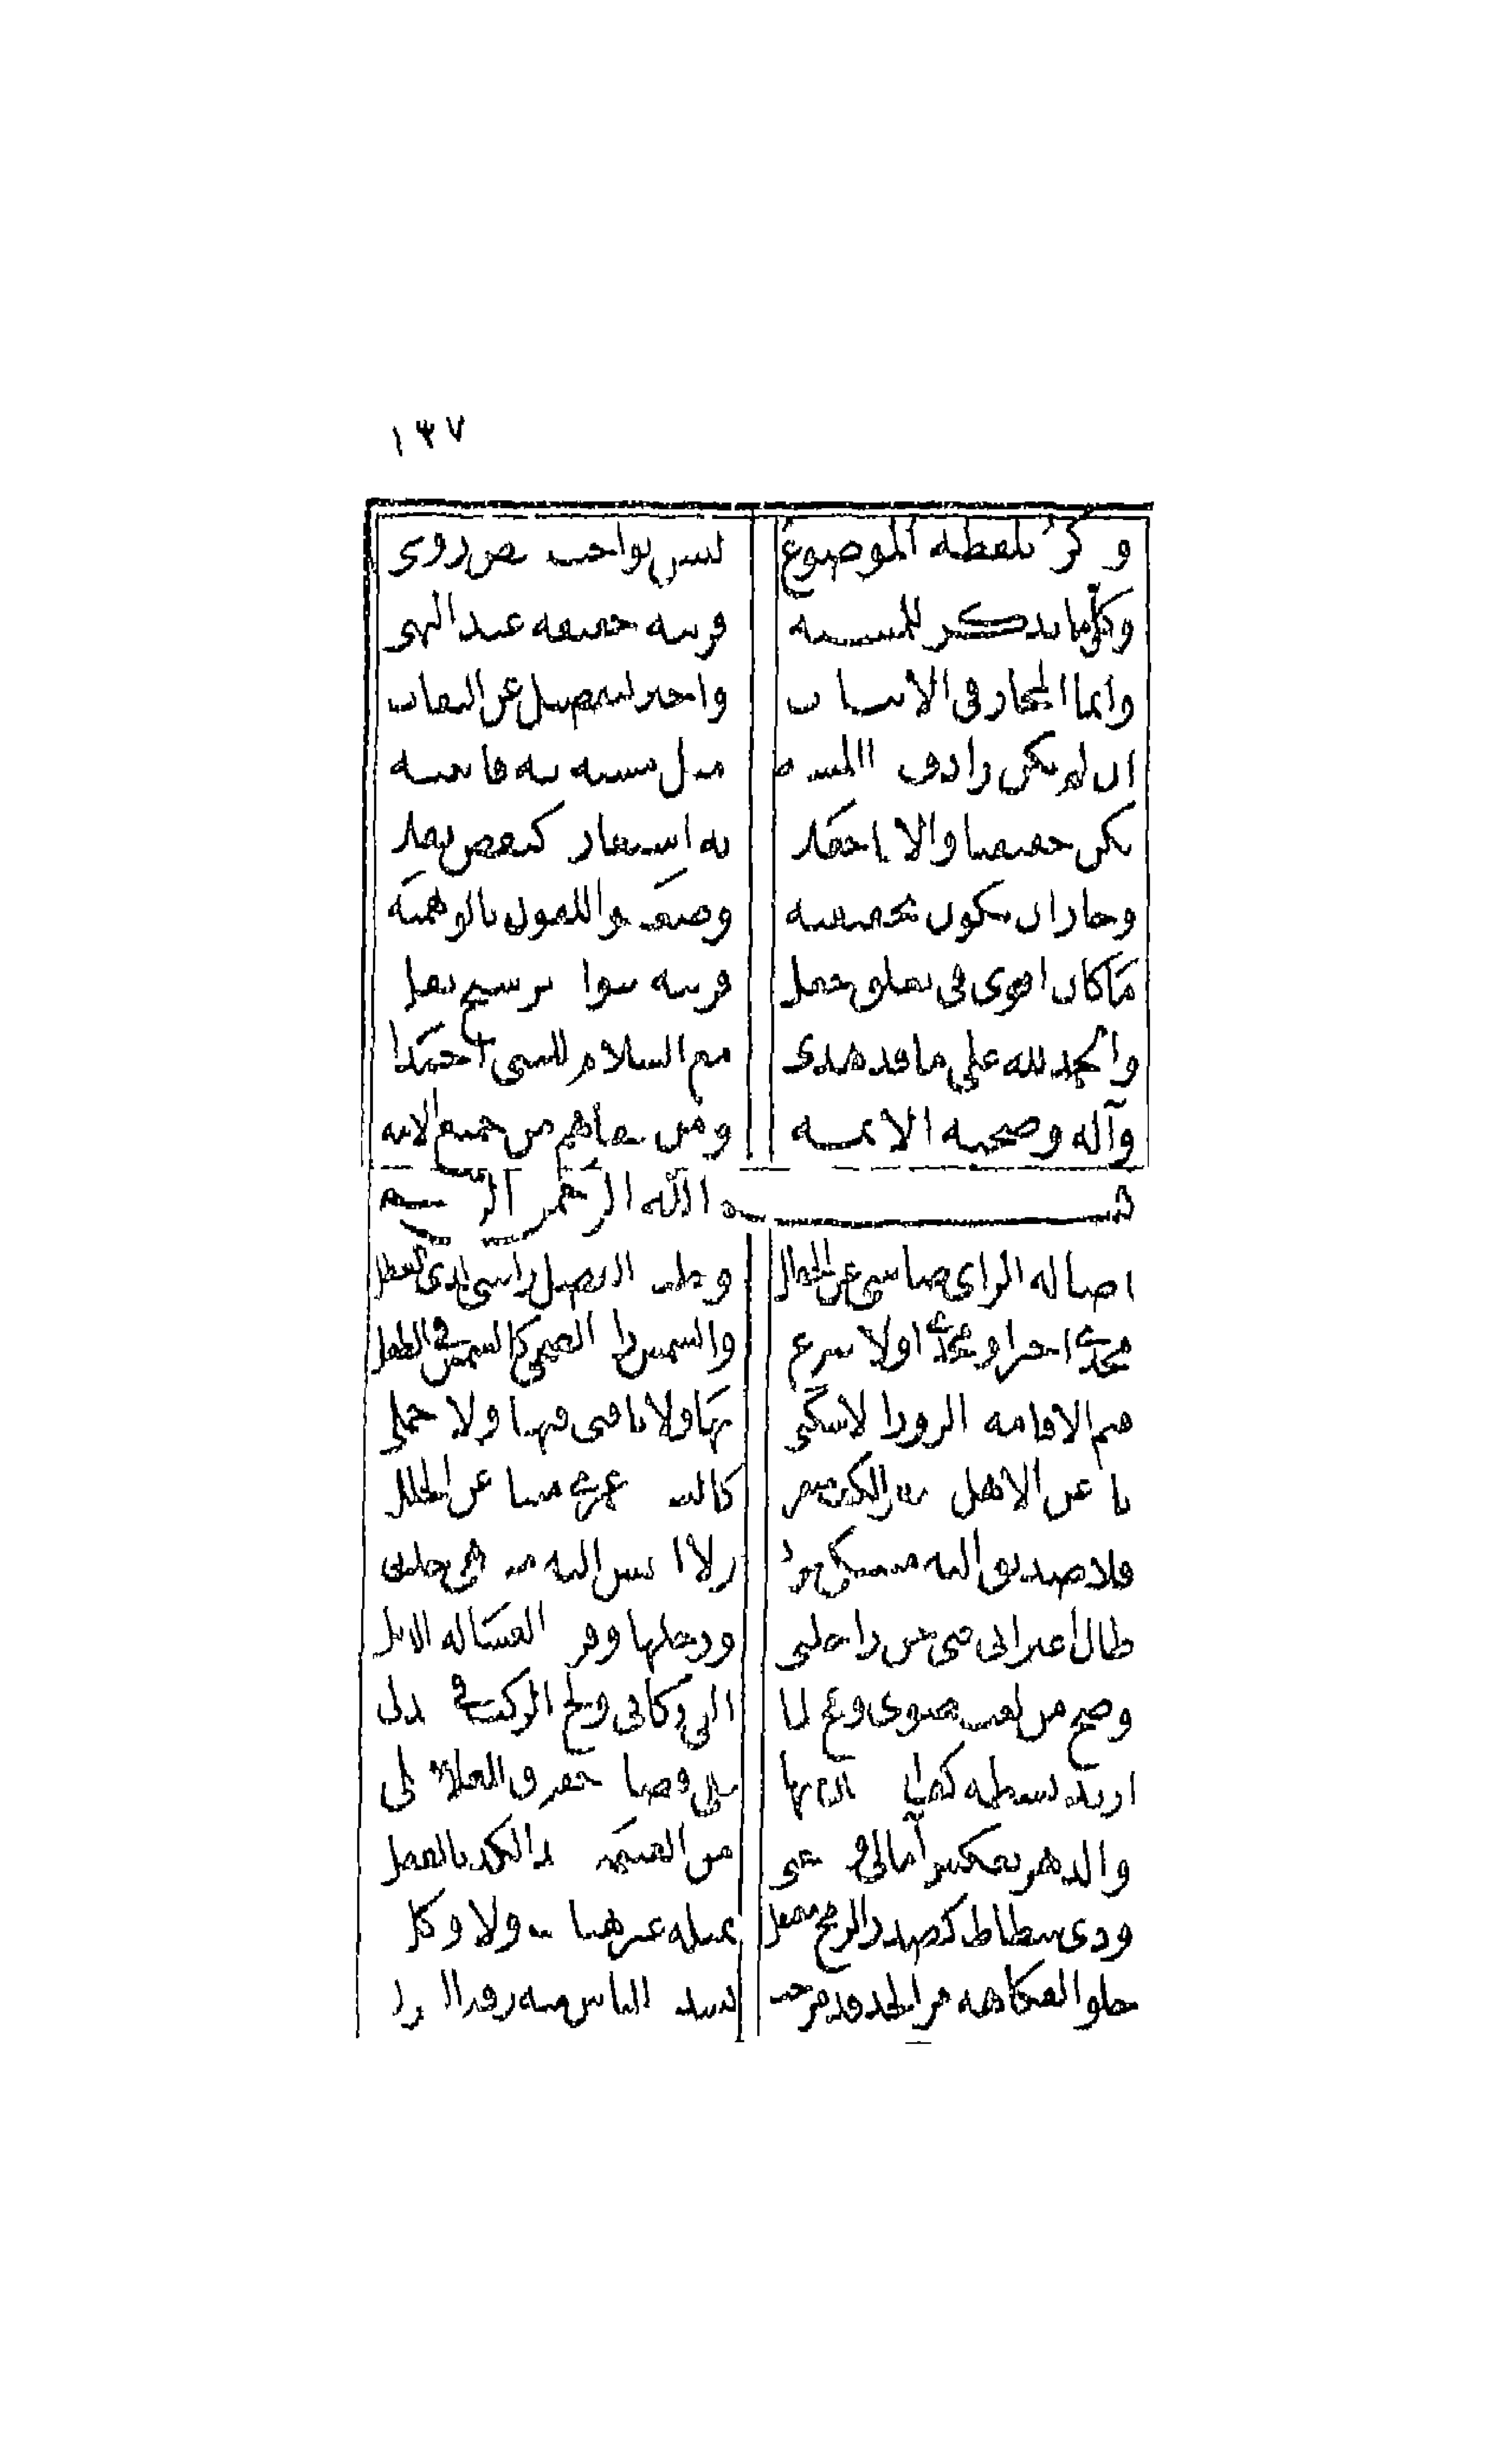 ١٣٧
وذكر بلفظه الموضوع ليس بواجب روى
وكل ما يذكر للمشبه قرينة حقيقة عند
وانما المجاز في الاثبات واختير تفصيل عن الثقات
ان لم يكن رادف المشبه مثل مشبه به فانتبه
يكن حقيقيا والا به استعار كنقض بعد
وجاز ان يكون تحقيقيه وضعف القول بالوهميه
ما كان اقوى في تعلق جعل قرينة سوا ترشيح
والحمد لله على ما قد هدى ثم السلام للنبي احمدا
وآله وصحبه الائمه ومن جميع الامه
بسم الله الرحمن الرحيم
اصالة الراي صانتني عن الخطل وحلية الفضل زانتني لدى العطل
مجدي اخيرا ومجدي اولا شرع والشمس راد الضحى كالشمس في الطفل
فيم الاقامة بالزورا لا سكني بها ولا ناقتي فيها ولا جملي
ناء عن الاهل صفر الكف منفرد كالسيف عري متناه عن الخلل
فلا صديق اليه مشتكى حزني ولا انيس اليه منتهى جذلي
طال اغترابي حتى حن راحلتي ورحلها وقرى العسالة الذبل
وضج من لغب نضوي وعج لما القى ركابي ولج الركب في عذلي
اريد بسطة كف استعين بها على قضا حقوق للعلا قبلي
والدهر يعكس آمالي ويقنعني من الغنيمة بعد الكد بالقفل
وذي شطاط كصدر الرمح معتقل بمثله غير هياب ولا وكل
حلو الفكاهة مر الجد قد مزجت بشدة الباس منه رقة الغزل